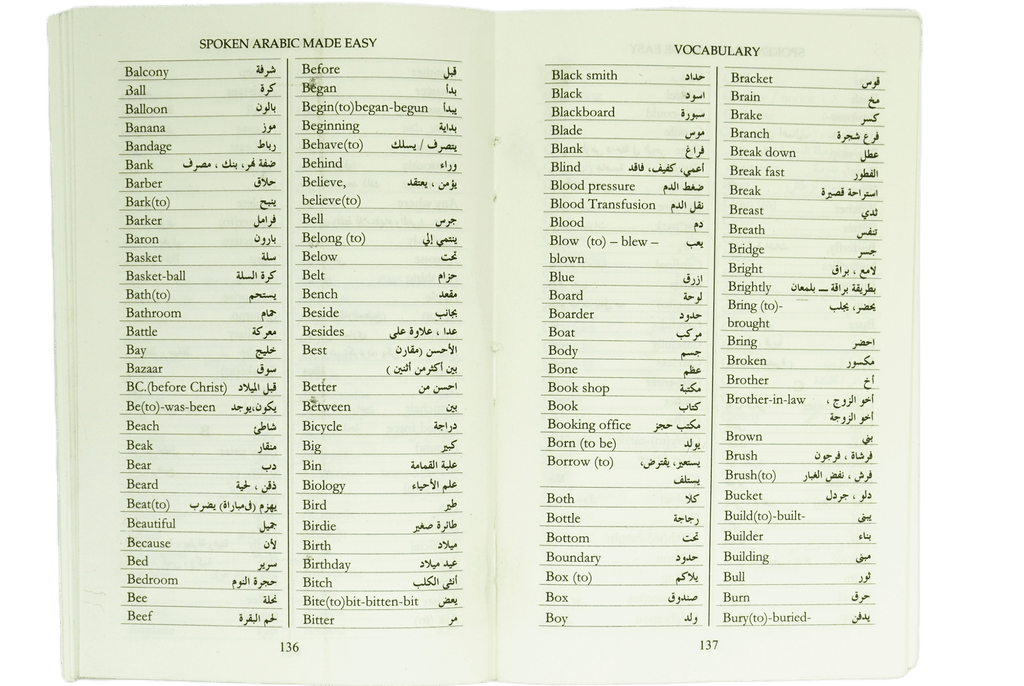 SPOKEN ARABIC MADE EASY
Balcony شرفة
Ball كرة
Balloon بالون
Banana موز
Bandage رباط
Bank ضفة نهر، بنك ، مصرف
Barber حلاق
Bark(to) ينبح
Barker فرامل
Baron بارون
Basket سلة
Basket-ball كرة السلة
Bath(to) يستحم
Bathroom حمام
Battle معركة
Bay خليج
Bazaar سوق
BC.(before Christ) قبل الميلاد
Be(to)-was-been يكون،يوجد
Beach شاطئ
Beak منقار
Bear دب
Beard ذقن ، لحية
Beat(to) يهزم (في مباراة) يضرب
Beautiful جميل
Because لأن
Bed سرير
Bedroom حجرة النوم
Bee نحلة
Beef لحم البقرة
Before قبل
Began بدأ
Begin(to)began-begun يبدأ
Beginning بداية
Behave(to) يتصرف / يسلك
Behind وراء
Believe, يؤمن ، يعتقد
believe(to)
Bell جرس
Belong (to) ينتمي إلي
Below تحت
Belt حزام
Bench مقعد
Beside بجانب
Besides عدا ، علاوة على
Best الأحسن (مقارن
بين أكثر من أثنين )
Better احسن من
Between بين
Bicycle دراجة
Big كبير
Bin علبة القمامة
Biology علم الأحياء
Bird طير
Birdie طائرة صغير
Birth ميلاد
Birthday عيد ميلاد
Bitch أنثى الكلب
Bite(to)bit-bitten-bit يعض
Bitter مر
136
VOCABULARY
Black smith حداد
Black اسود
Blackboard سبورة
Blade موس
Blank فراغ
Blind أعمي، كفيف، فاقد
Blood pressure ضغط الدم
Blood Transfusion نقل الدم
Blood دم
Blow (to) – blew – يعب
blown
Blue ازرق
Board لوحة
Boarder حدود
Boat مركب
Body جسم
Bone عظم
Book shop مكتبة
Book كتاب
Booking office مكتب حجز
Born (to be) يولد
Borrow (to) يستعير، يقترض،
يستلف
Both كلا
Bottle زجاجة
Bottom تحت
Boundary حدود
Box (to) يلاكم
Box صندوق
Boy ولد
Bracket قوس
Brain مخ
Brake كسر
Branch فرع شجرة
Break down عطل
Break fast الفطور
Break استراحة قصيرة
Breast ثدي
Breath تنفس
Bridge جسر
Bright لامع ، براق
Brightly بطريقة براقة ــ بلمعان
Bring (to)- يحضر، يجلب
brought
Bring احضر
Broken مكسور
Brother أخ
Brother-in-law أخو الزوج ،
أخو الزوجة
Brown بني
Brush فرشاة ، فرجون
Brush(to) فرش ، نفض الغبار
Bucket دلو ، جردل
Build(to)-built- يبنى
Builder بناء
Building مبنى
Bull ثور
Burn حرق
Bury(to)-buried- يدفن
137